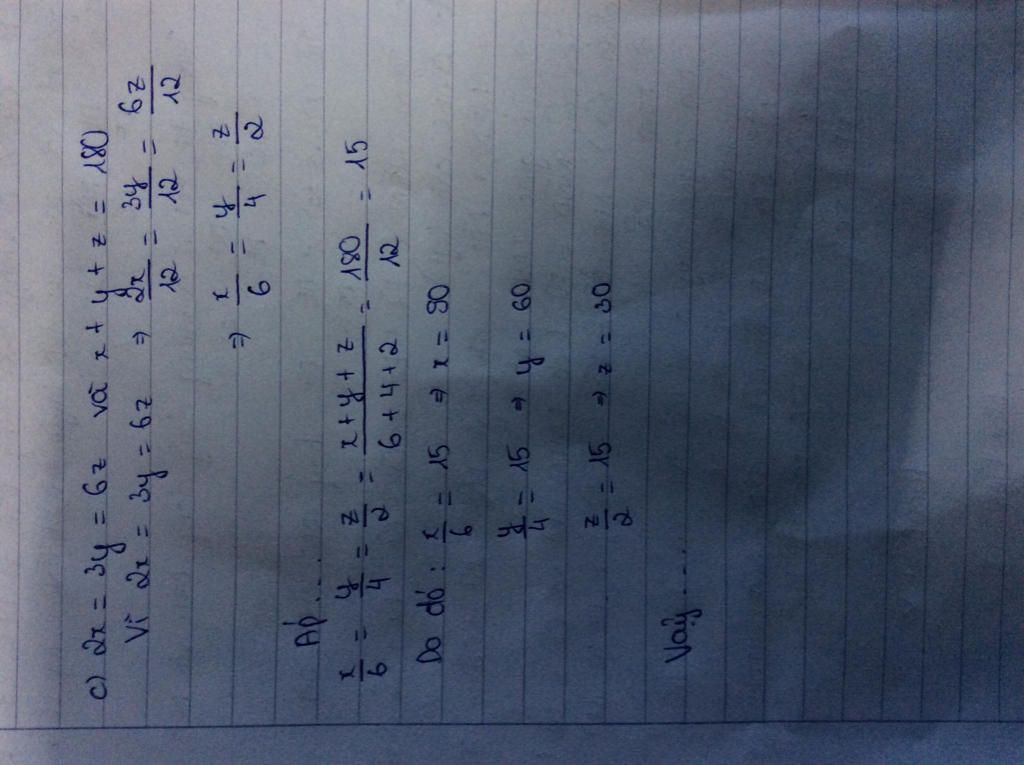 c) 2x = 3y = 6z và x + y + z = 180
Vì 2x = 3y = 6z ⇒ 2x/12 = 3y/12 = 6z/12
⇒ x/6 = y/4 = z/2
Áp ....
x/6 = y/4 = z/2 = x + y + z/6 + 4 + 2 = 180/12 = 15
Do đó : x/6 = 15 ⇒ x = 90
y/4 = 15 ⇒ y = 60
z/2 = 15 ⇒ z = 30
Vậy ....